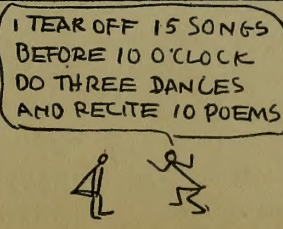 I TEAR OFF 15 SONGS
BEFORE 10 O'CLOCK
DO THREE DANCES
AND RECITE 10 POEMS